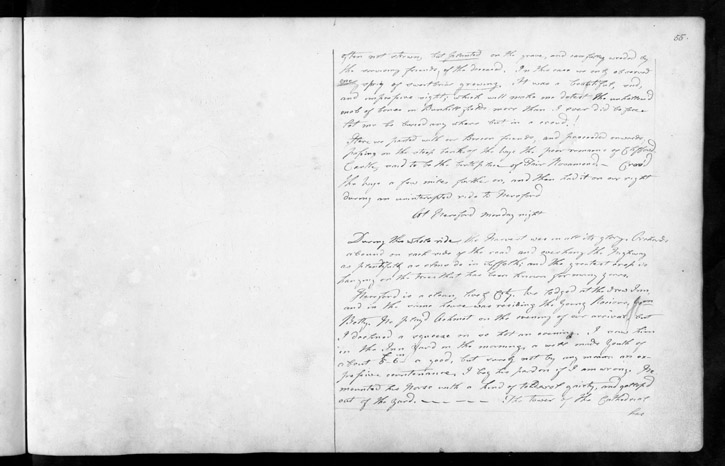 55.
often not strewn, but planted on the grave, and carefully weeded by
the surviving friends, of the deceased. In this case we only observed
sprig of sweetbriar growing. It was a beautiful, and,
and impressive sight, which will make me detest the unhallowed
mob of bones in Bunhill fields more than I ever did before
let me be buried any where but in a crowd.!
Here we parted with our Brecon friends, and proceeded onwards
passing on the steep bank of the Wye the poor remains of Clifford
Castle, said to be the birthplace of Fair Rosamond. Cross'd
the Wye a few miles farther on, and then had it on our right
during an uninterrupted ride to Hereford
At Hereford Monday night
During the whole ride the Harvest was in all its glory. Orchards
abound on each side of the road and overhang the Highway
as plentifully as elms do in Suffolk; and the greatest crop is
hanging on the trees that has been known for many years.
Hereford is a clean, livel City. We lodged at the New Inn,
and in the same house was residing the young Roscius,
Betty. He play'd on the evening of our arrival, but
I declined a squeeze on so hot an evening. I saw him
in the Inn Yard in the morning, a well made youth of
about 5 ft 6 in a good, but surely not by any means an ex-
pressive countenance, I beg his pardon if I am wrong. He
mounted his Horse with a kind of gaiety, and gallop'd
out of the Yard. — — — — — The tower of the Cathedral
has